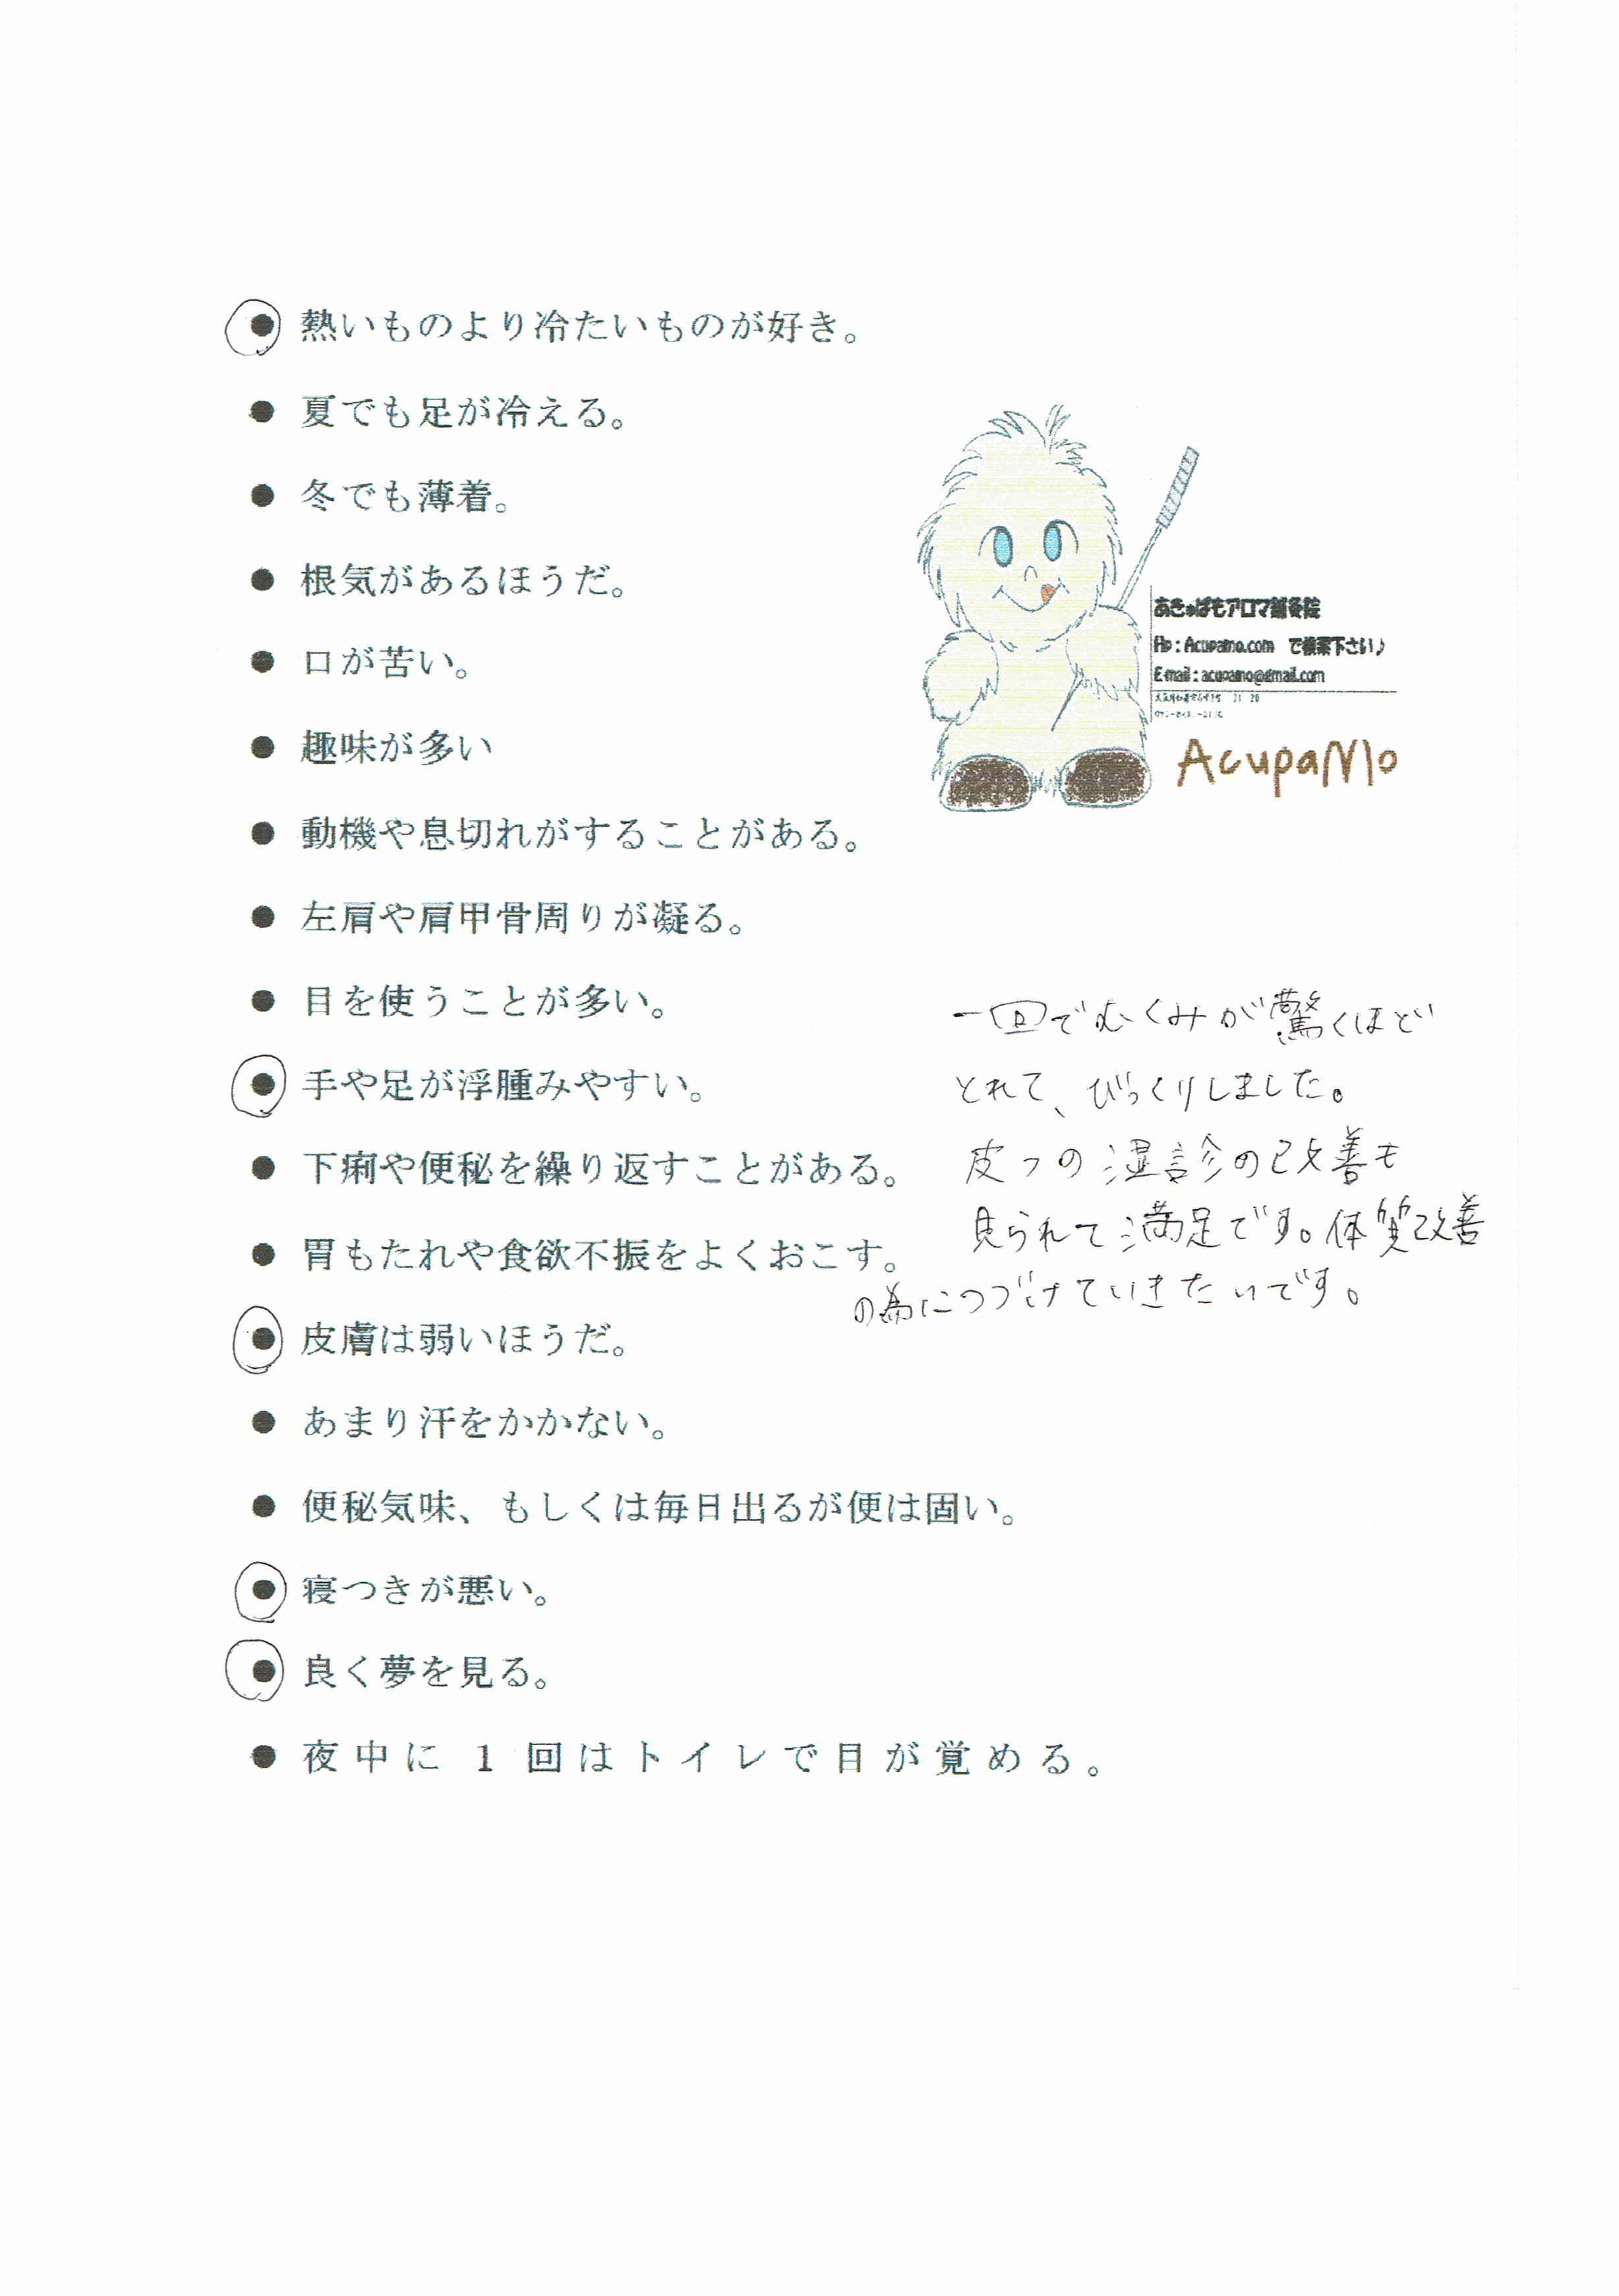 熱いものより冷たいものが好き。
夏でも足が冷える。
冬でも薄着。
根気があるほうだ。
口が苦い。
趣味が多い
動機や息切れがすることがある。
左肩や肩甲骨周りが凝る。
目を使うことが多い。
手や足が浮腫みやすい。
下痢や便秘を繰り返すことがある。
胃もたれや食欲不振をよくおこす。
皮膚は弱いほうだ。
あまり汗をかかない。
便秘気味、もしくは毎日出るが便は固い。
寝つきが悪い。
良く夢を見る。
夜中に 1 回はトイレで目が覚める。
あきゅぱもアロマ鍼灸院
Hp : Acupamo.com で検索下さい♪
E-mail : acupamo@gmail.com
AcupaMo
一回でむくみが驚くほど
とれて、びっくりしました。
皮フの湿診の改善も
見られて満足です。体質改善
の為につづけていきたいです。